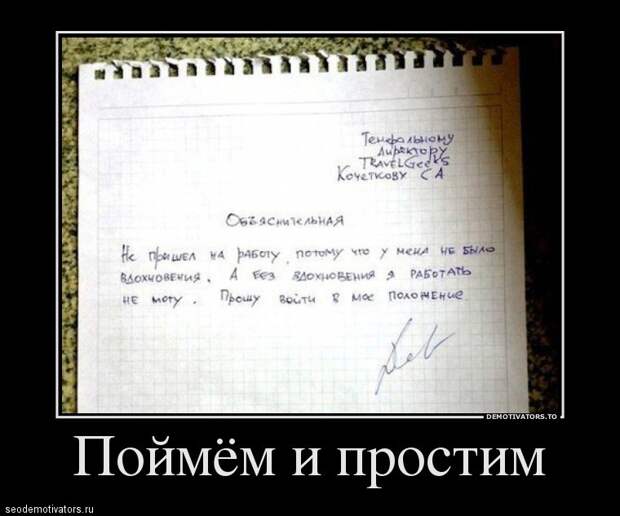 Генеральному
Директору
TRAVELGeeks
Кочеткову СА
Объяснительная
Не пришел на работу, потому что у меня не было
вдохновения. А без вдохновения я работать
не могу. Прошу войти в мое положение
DEMOTIVATORS.TO
Поймём и простим
seodemotivators.ru